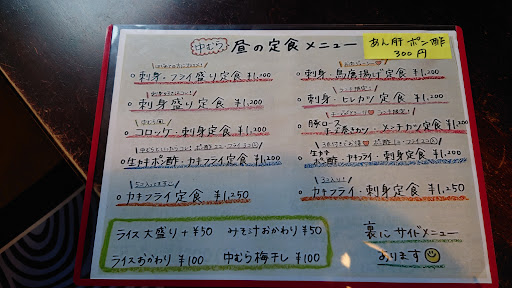 中むら 昼の定食メニュー
あん肝ポン酢
300円
刺身・フライ盛り定食 ¥1,200
刺身盛り定食 ¥1,200
コロッケ・刺身定食 ¥1,200
生カキポン酢・カキフライ定食 ¥1,200
5コ入ってます♡
カキフライ定食 ¥1,250
刺身・鳥唐揚げ定食 ¥1,200
刺身・ヒレカツ定食 ¥1,200
豚ロース
メンチカツ定食 ¥1,200
生カキポン酢・カキフライ・刺身定食 ¥1,200
3コ入り!
カキフライ・刺身定食 ¥1,250
ライス大盛り +¥50 みそ汁おかわり ¥50
ライスおかわり ¥100 中むら梅干し ¥100
裏にサイドメニュー
あります